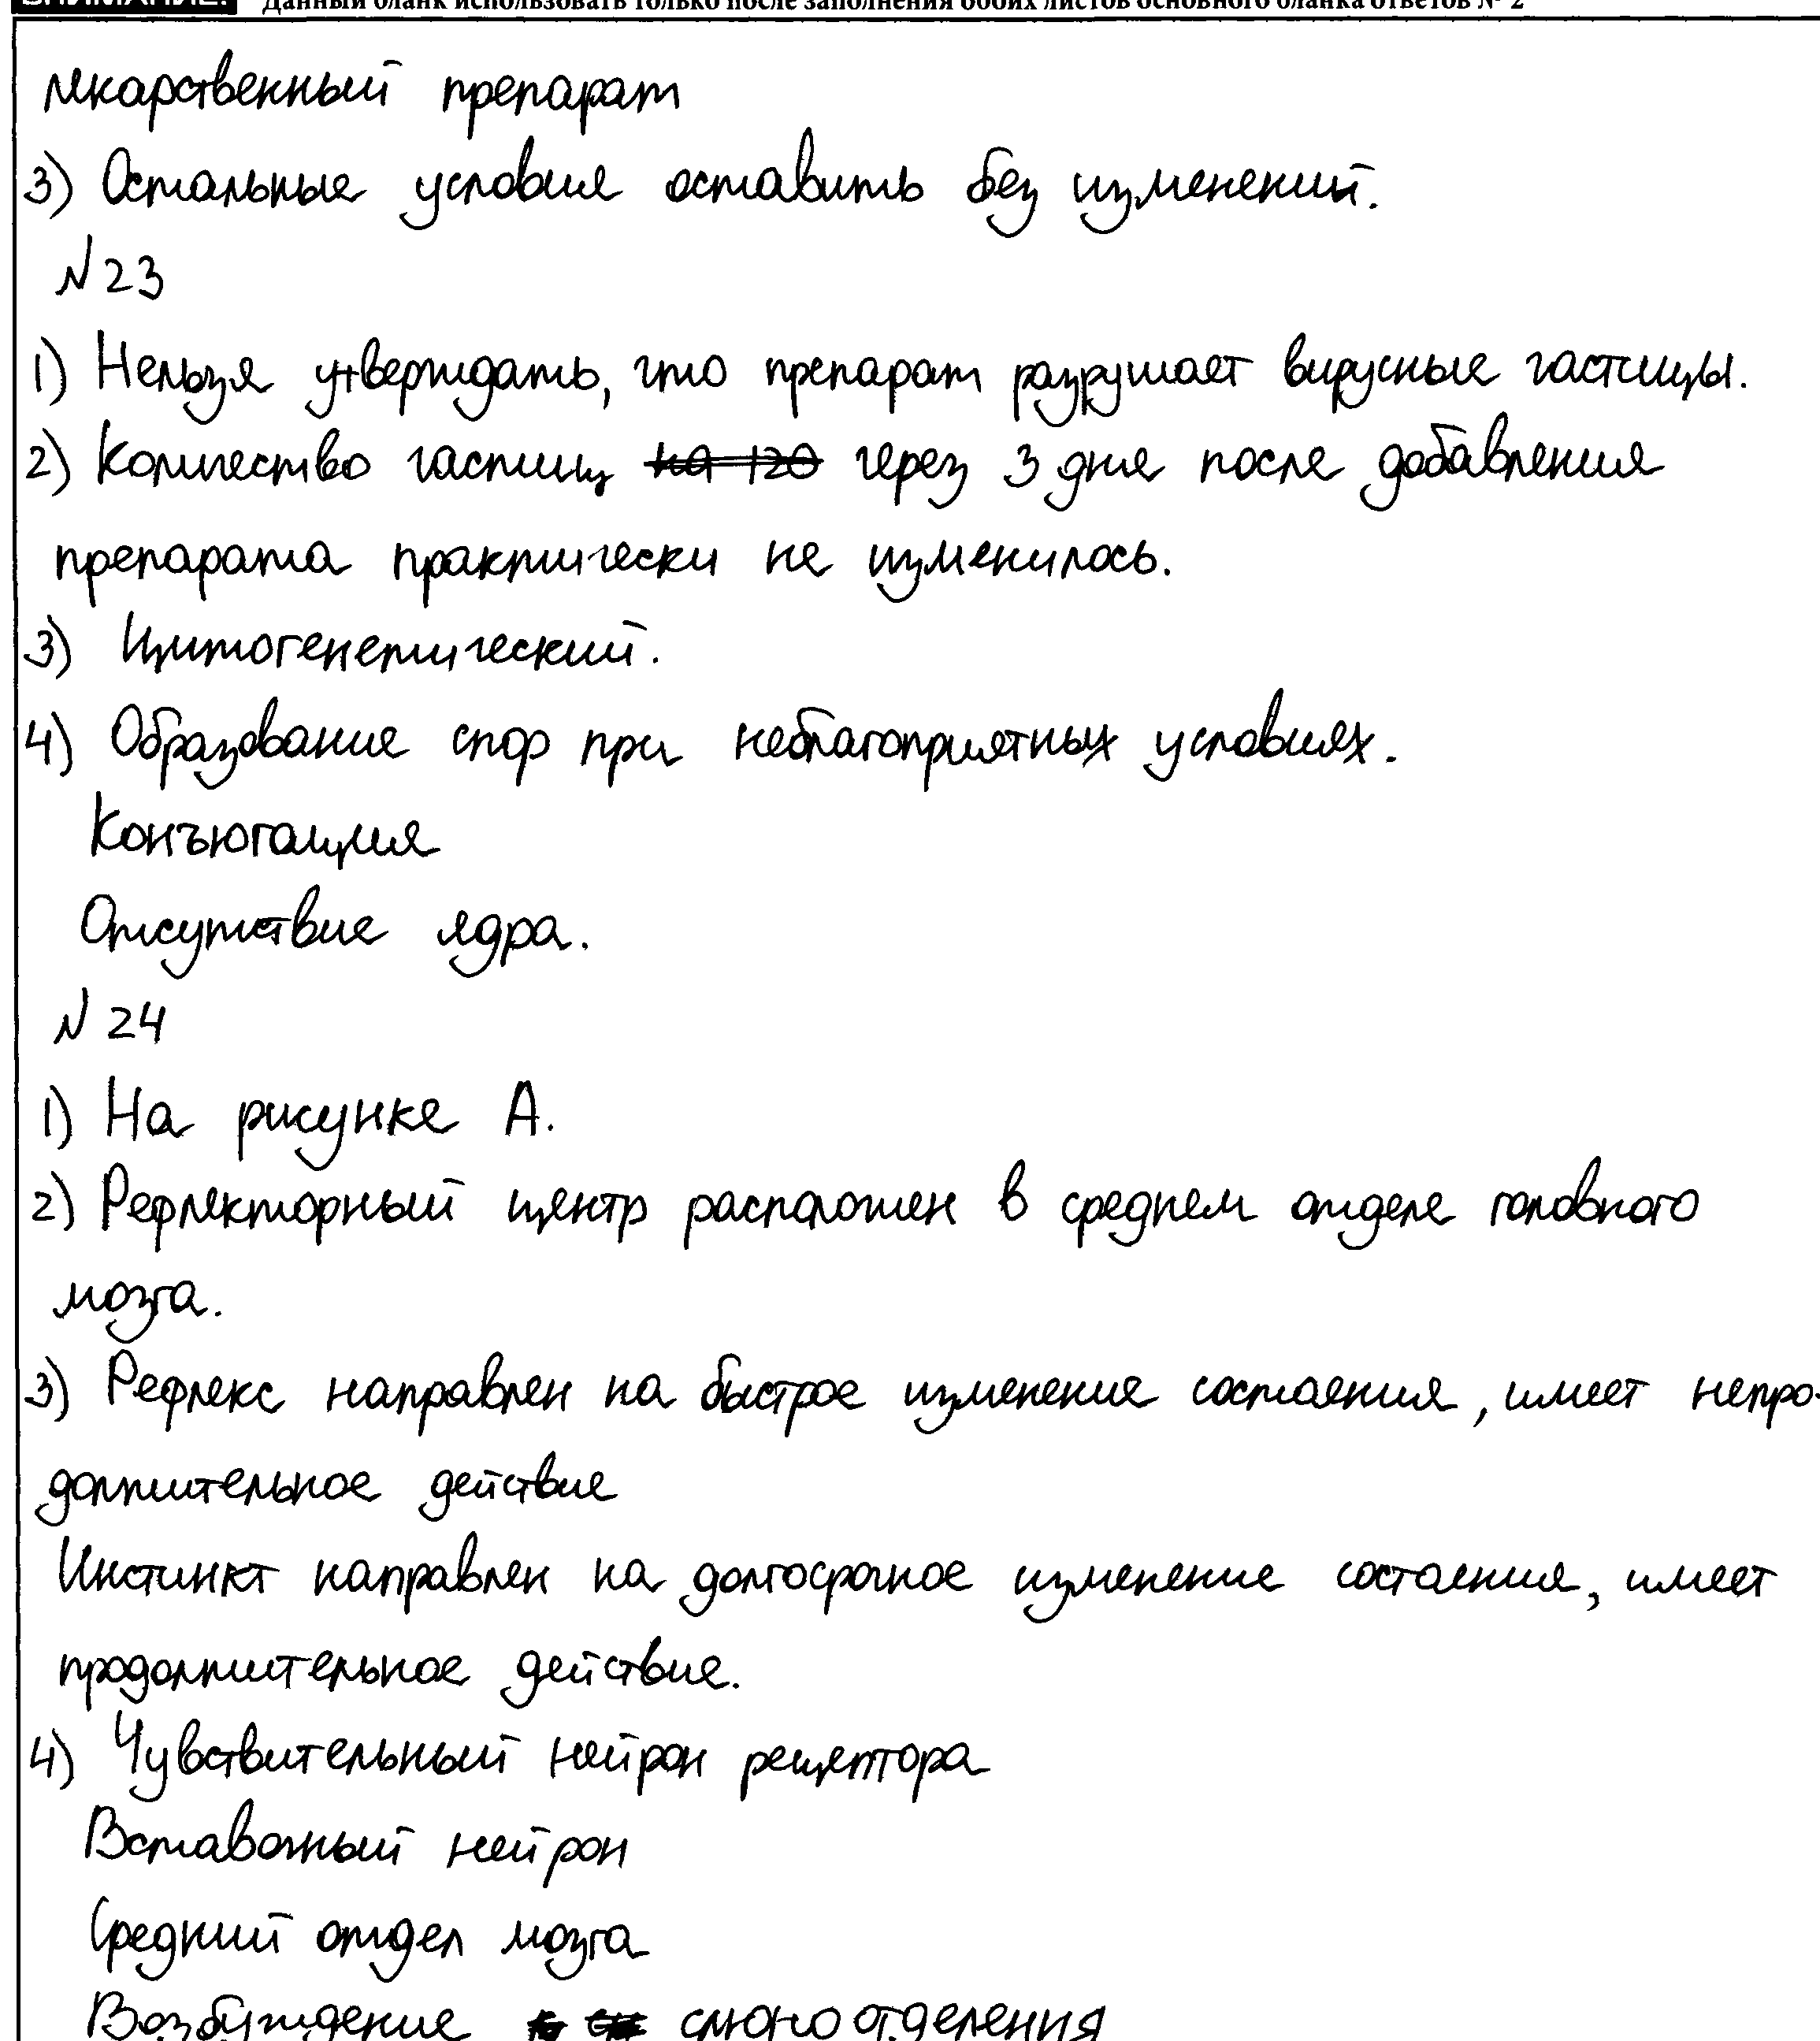 ВНИМАНИЕ! Данный бланк использовать только после заполнения обоих листов основного бланка ответов № 2
лекарственный препарат
3) Остальные условия оставить без изменений.
№23
1) Нельзя утверждать, что препарат разрушает вирусные частицы.
2) Количество частиц на 120 через 3 дня после добавления
препарата практически не изменилось.
3) Цитогенетический.
4) Образование спор при неблагоприятных условиях.
Конъюгация
Отсутствие ядра.
№24
1) На рисунке А.
2) Рефлекторный центр расположен в среднем отделе головного
мозга.
3) Рефлекс направлен на быстрое изменение состояния, имеет непро-
должительное действие
Инстинкт направлен на долгосрочное изменение состояния, имеет
продолжительное действие.
4) Чувствительный нейрон рецептора
Вставочный нейрон
Средний отдел мозга
Возбуждение слюноотделения